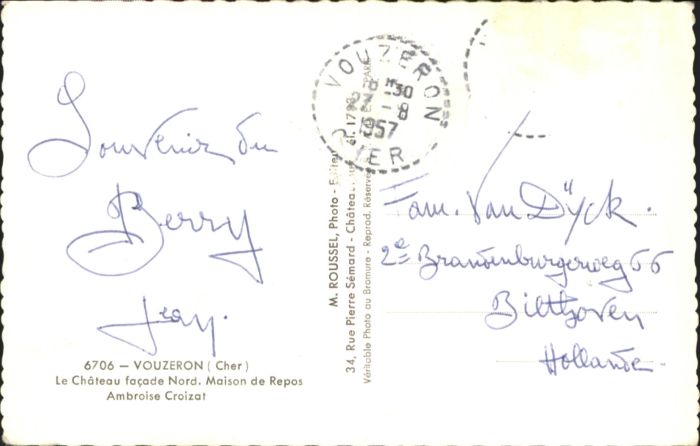 Souvenir du
Berry
Jean.
6706 — VOUZERON ( Cher )
Le Château façade Nord. Maison de Repos
Ambroise Croizat
M. ROUSSEL, Photo - Editeur
34, Rue Pierre Sémard - Châteauroux
Véritable Photo au Bromure - Reprod. Réservée
VOUZERON
30
8
1957
CHER
Fam. Van Dÿck.
2e Brandenburgerweg 66
Bilthoven
Hollande